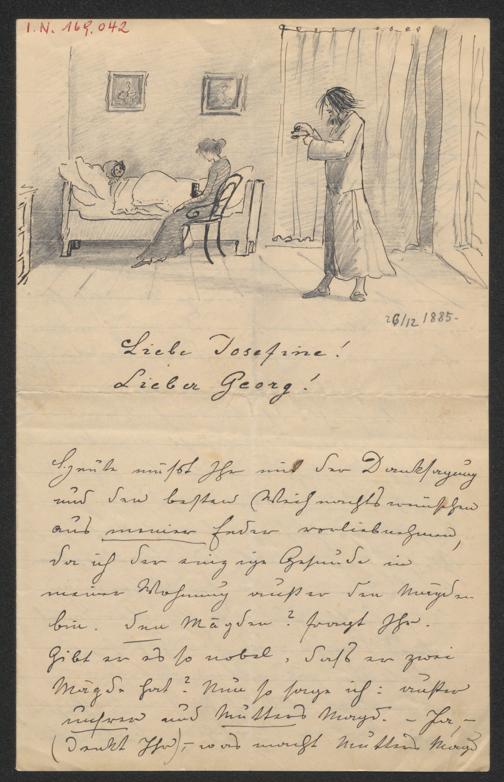 I.N. 169.042
26/12 1885.
Liebe Josefine!
Lieber Georg!
Heute müßt Ihr mit der Danksagung
und den besten Weihnachtswünschen
aus meiner Feder vorliebnehmen,
da ich der einzige Gesunde in
meiner Wohnung außer den Mägden
bin. Den Mägden? fragt Ihr.
Gibt er es so nobel, daß er zwei
Mägde hat? Nun so sage ich: außer
unserer und Mutters Magd. – Ja, –
(denkt Ihr) – was macht Mutters Magd